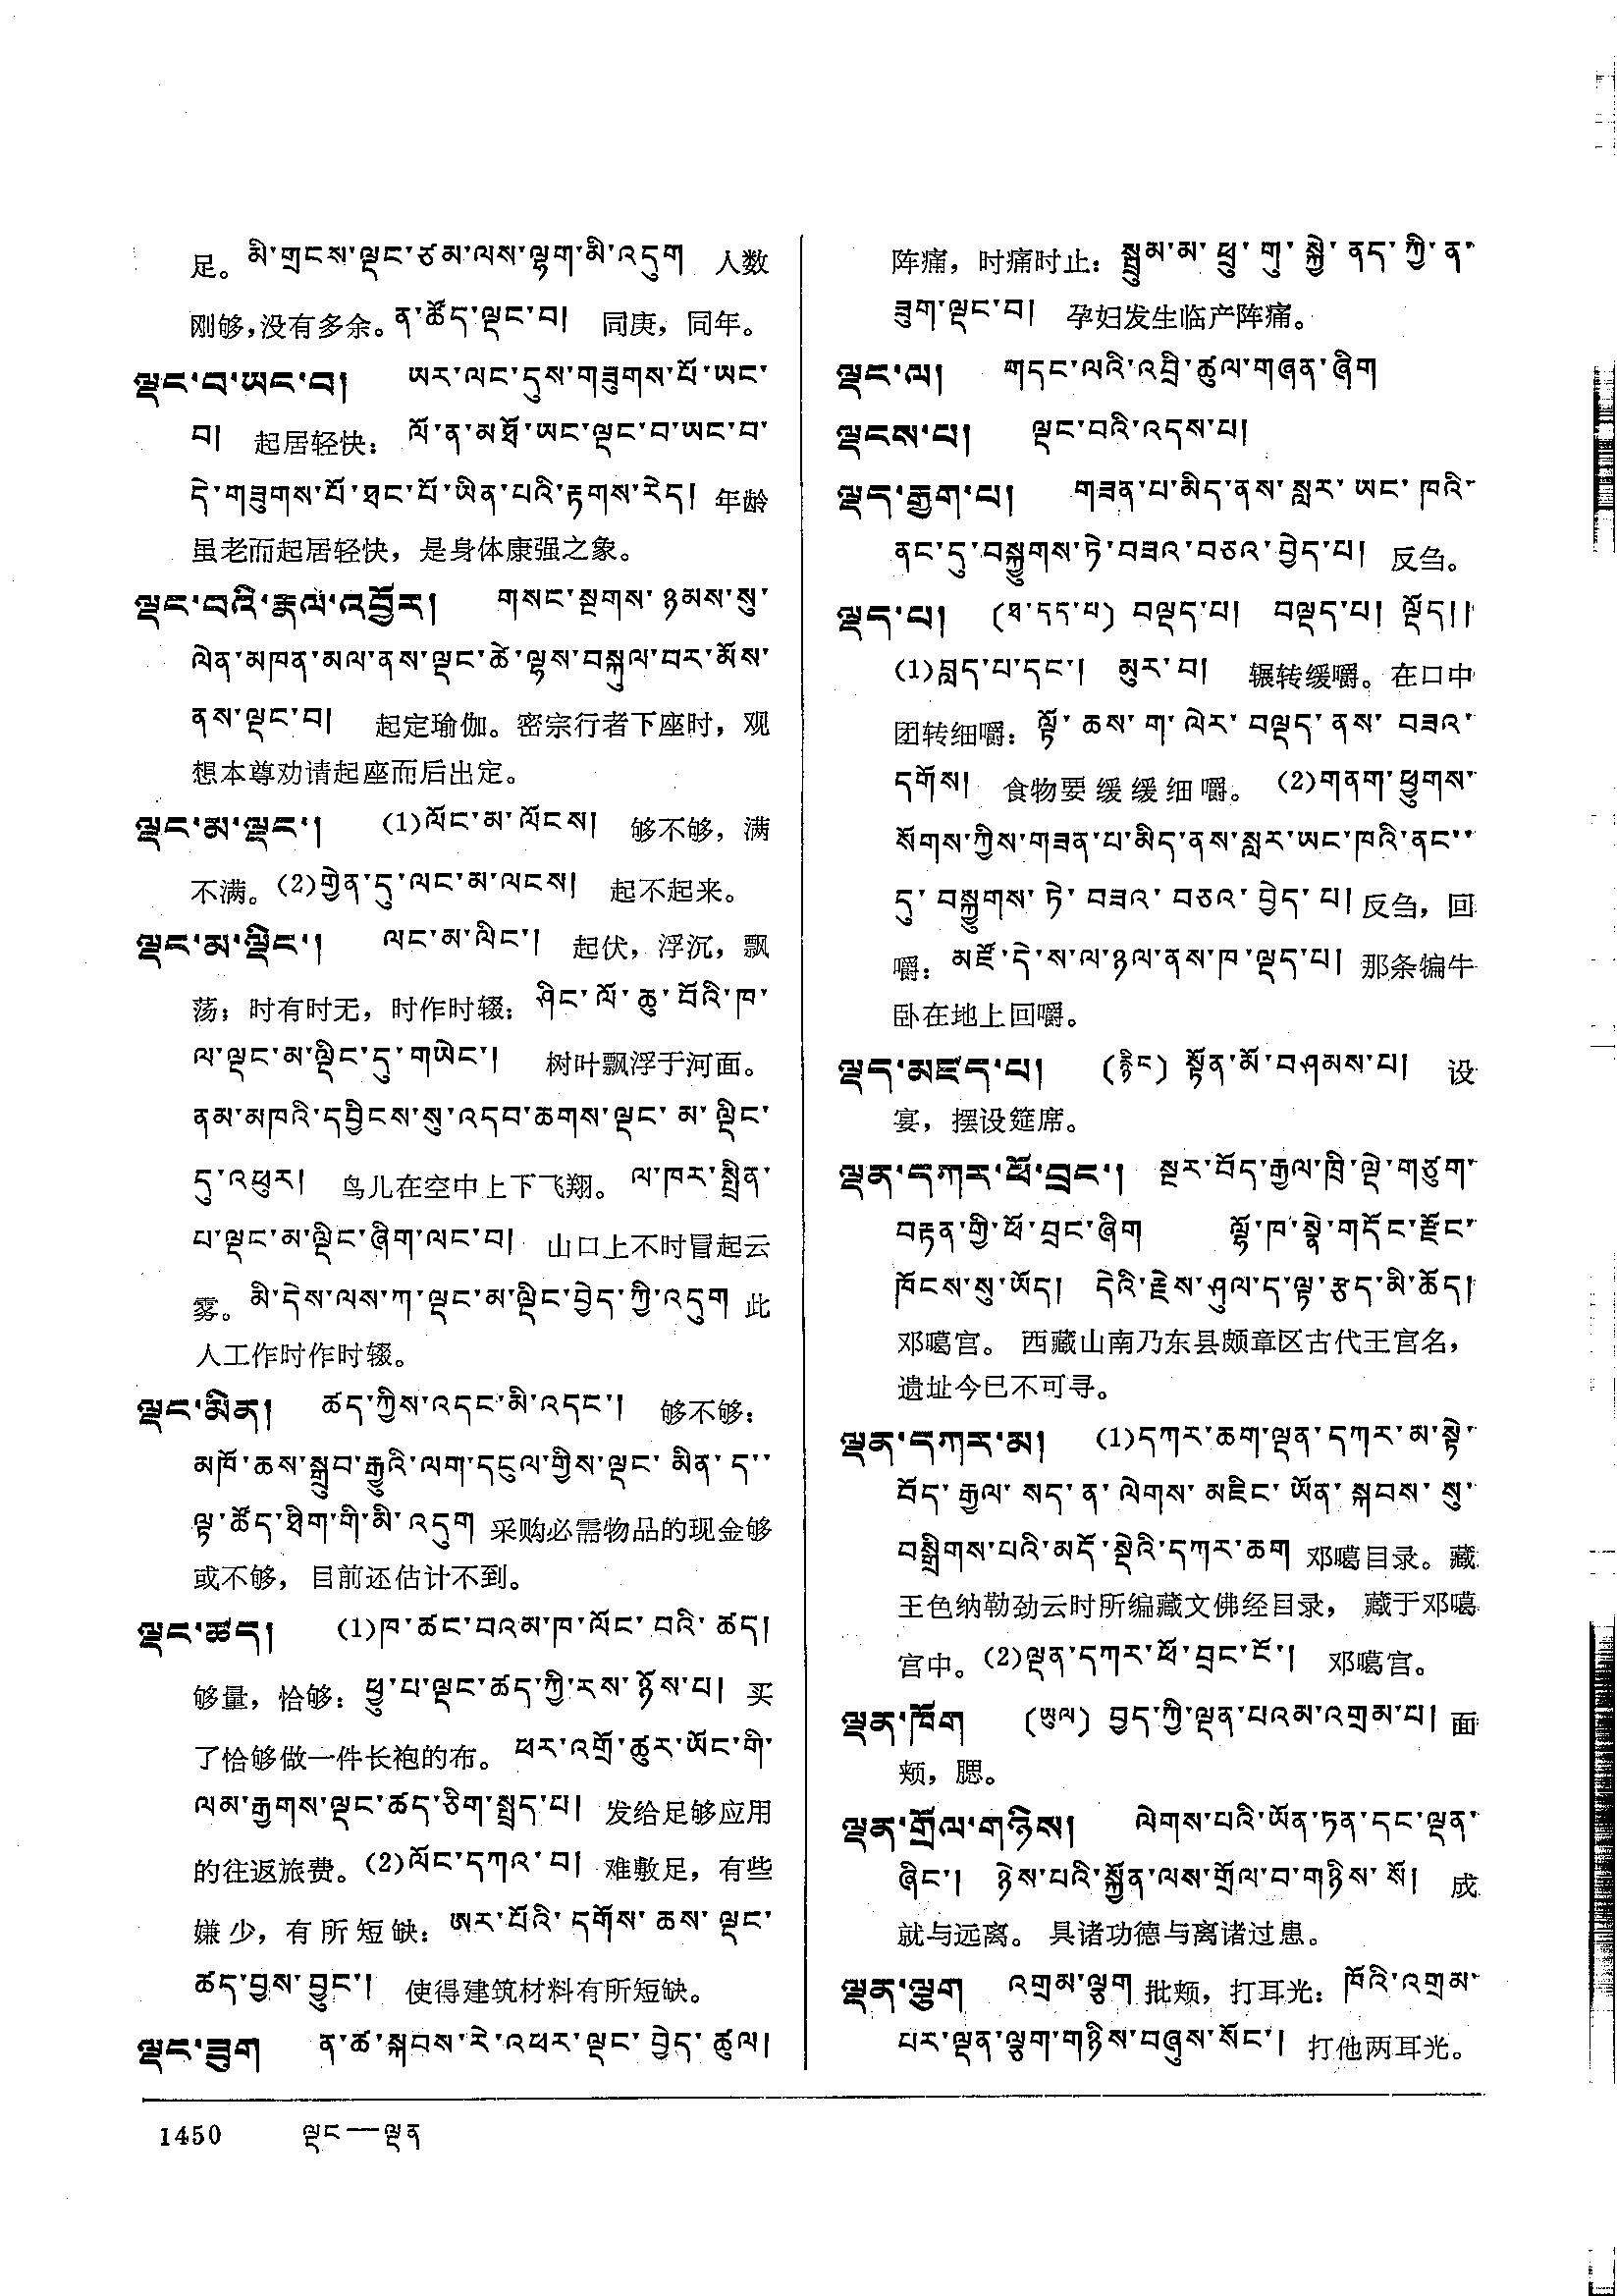 足。མི་གྲངས་ལྡང་ཙམ་ལས་ལྷག་མི་འདུག 人数
刚够,没有多余。ན་ཚོད་ལྡང་བ། 同庚，同年。
ལྡང་བ་ཡང་བ། ཨར་ལང་དུས་གཟུགས་པོ་ཡང་
བ། 起居轻快: ལོ་ན་མཐོ་ཡང་ལྡང་བ་ཡང་བ་
དེ་གཟུགས་པོ་ཐང་པོ་ཡིན་པའི་རྟགས་རེད། 年龄
虽老而起居轻快，是身体康强之象。
ལྡང་བའི་རྣལ་འབྱོར། གསང་སྔགས་ཉམས་སུ་
ལེན་མཁན་མལ་ནས་ལྡང་ཚེ་ལྷས་བསྐུལ་བར་མོས་
ནས་ལྡང་བ། 起定瑜伽。密宗行者下座时，观
想本尊劝请起座而后出定。
ལྡང་མ་ལྡང་། (1)ལོང་མ་ལོངས། 够不够，满
不满。(2)གྱེན་དུ་ལང་མ་ལངས། 起不起来。
ལྡང་མ་ལྡིང་། ལང་མ་ལིང་། 起伏，浮沉，飘
荡；时有时无，时作时辍: ཤིང་ལོ་ཆུ་བོའི་ཁ་
ལ་ལྡང་མ་ལྡིང་དུ་གཡེང་། 树叶飘浮于河面。
ནམ་མཁའི་དབྱིངས་སུ་འདབ་ཆགས་ལྡང་མ་ལྡིང་
དུ་འཕུར། 鸟儿在空中上下飞翔。ལ་ཁར་སྤྲིན་
པ་ལྡང་མ་ལྡིང་ཞིག་ལང་བ། 山口上不时冒起云
雾。མི་དེས་ལས་ཀ་ལྡང་མ་ལྡིང་བྱེད་ཀྱི་འདུག 此
人工作时作时辍。
ལྡང་མིན། ཚད་ཀྱིས་འདང་མི་འདང་། 够不够:
མཁོ་ཆས་སྒྲུབ་རྒྱུའི་ལག་དངུལ་གྱིས་ལྡང་མིན་ད་་
ལྟ་ཚོད་ཐིག་གི་མི་འདུག 采购必需物品的现金够
或不够，目前还估计不到。
ལྡང་ཚད། (1)ཁ་ཚང་བའམ་ཁ་ལོང་བའི་ཚད།
够量，恰够: ཕྱུ་པ་ལྡང་ཚད་ཀྱི་རས་ཉོས་པ། 买
了恰够做一件长袍的布。ཕར་འགྲོ་ཚུར་ཡོང་གི་
ལམ་རྒྱགས་ལྡང་ཚད་ཅིག་སྤྲད་པ། 发给足够应用
的往返旅费。(2)ལོང་དཀའ་བ། 难敷足，有些
嫌少，有所短缺: ཨར་པོའི་དགོས་ཆས་ལྡང་
ཚད་བྱས་བྱུང་། 使得建筑材料有所短缺。
ལྡང་ཟུག ན་ཚ་སྐབས་རེ་འཕར་ལྡང་བྱེད་ཚུལ།
阵痛，时痛时止: སྦྲུམ་མ་ཕྲུ་གུ་སྐྱེ་ནད་ཀྱི་ན་
ཟུག་ལྡང་བ། 孕妇发生临产阵痛。
ལྡང་ལ། གདང་ལའི་འབྲི་ཚུལ་གཞན་ཞིག
ལྡངས་པ། ལྡང་བའི་འདས་པ།
ལྡད་རྒྱག་པ། གཟན་པ་མིད་ནས་སླར་ཡང་ཁའི་
ནང་དུ་བསྐྱུགས་ཏེ་བཟའ་བཅའ་བྱེད་པ། 反刍。
ལྡད་པ། (ཐ་དད་པ) བལྡད་པ། བལྡད་པ། ལྡོད།།
(1)བླད་པ་དང་། མུར་བ། 辗转缓嚼。在口中
团转细嚼: ལྟོ་ཆས་ག་ལེར་བལྡད་ནས་བཟའ་
དགོས། 食物要缓缓细嚼。(2)གནག་ཕྱུགས་
སོགས་ཀྱིས་གཟན་པ་མིད་ནས་སླར་ཡང་ཁའི་ནང་་
དུ་བསྐྱུགས་ཏེ་བཟའ་བཅའ་བྱེད་པ། 反刍，回
嚼: མཛོ་དེ་ས་ལ་ཉལ་ནས་ཁ་ལྡད་པ། 那条犏牛
卧在地上回嚼。
ལྡད་མཛད་པ། (རྙིང) སྟོན་མོ་བཤམས་པ། 设
宴，摆设筵席。
ལྡན་དཀར་ཕོ་བྲང་། སྔར་བོད་རྒྱལ་ཁྲི་ལྡེ་གཙུག་
བརྟན་གྱི་ཕོ་བྲང་ཞིག ལྷོ་ཁ་སྣེ་གདོང་རྫོང་
ཁོངས་སུ་ཡོད། དེའི་རྗེས་ཤུལ་ད་ལྟ་རྩད་མི་ཆོད།
邓噶宫。 西藏山南乃东县颇章区古代王宫名，
遗址今已不可寻。
ལྡན་དཀར་མ། (1)དཀར་ཆག་ལྡན་དཀར་མ་སྟེ་
བོད་རྒྱལ་སད་ན་ལེགས་མཇིང་ཡོན་སྐབས་སུ་
བསྒྲིགས་པའི་མདོ་སྡེའི་དཀར་ཆག 邓噶目录。藏
王色纳勒劲云时所编藏文佛经目录，藏于邓噶
宫中。(2)ལྡན་དཀར་ཕོ་བྲང་ངོ་། 邓噶宫。
ལྡན་ཁོག (ཡུལ) བྱད་ཀྱི་ལྡན་པའམ་འགྲམ་པ། 面
颊，腮。
ལྡན་གྲོལ་གཉིས། ལེགས་པའི་ཡོན་ཏན་དང་ལྡན་
ཞིང་། ཉེས་པའི་སྐྱོན་ལས་གྲོལ་བ་གཉིས་སོ། 成
就与远离。 具诸功德与离诸过患。
ལྡན་ལྕག འགྲམ་ལྕག 批颊，打耳光: ཁོའི་འགྲམ་
པར་ལྡན་ལྕག་གཉིས་བཞུས་སོང་། 打他两耳光。
1450 ལྡང—ལྡན